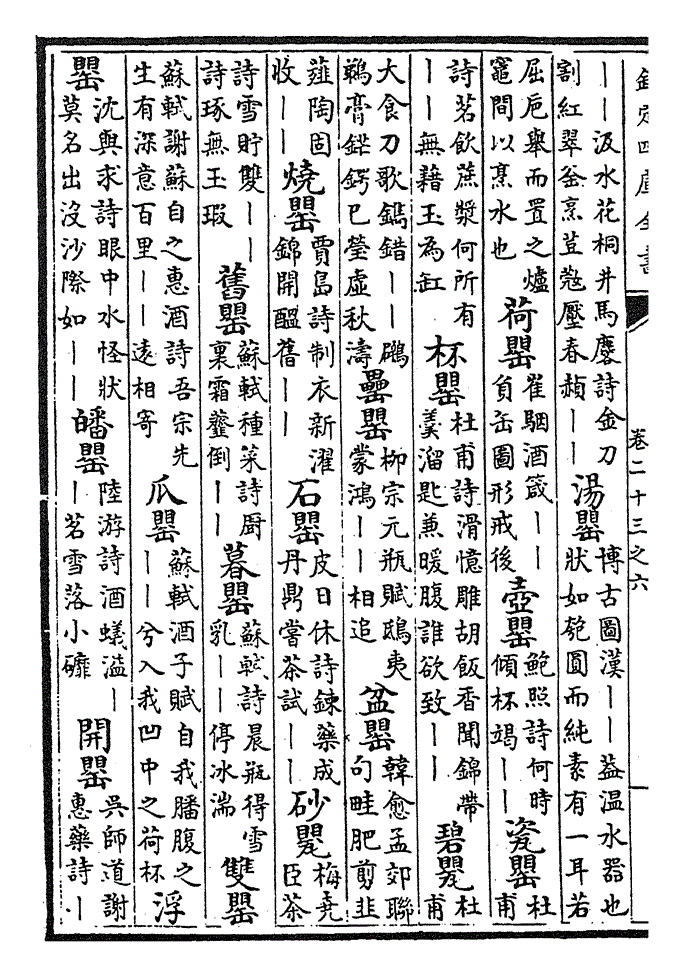 欽定四庫全書 卷二十三之六
｜｜汲水花桐井馬麐詩金刀割紅翠釜烹荳㲉壓春赬｜｜湯罌博古圖漢｜｜葢温水器也狀如匏圓而純素有一耳若
屈卮舉而置之爐竈間以烹水也荷罌崔駰酒箴｜｜負缶圖形戒後壺罌鮑照詩何時傾杯竭｜｜瓷罌杜甫
詩茗飲蔗漿何所有｜｜無藉玉為缸杯罌杜甫詩滑憶雕胡飯香聞錦帶羹溜匙兼暖腹誰欲致｜｜碧甖杜甫
大食刀歌鐫錯｜｜鸊鵜膏鋩鍔已瑩虛秋濤罍罌柳宗元瓶賦鴟夷蒙鴻｜｜相追盆罌韓愈孟郊聯句畦肥剪韭
薤陶固收｜｜燒罌賈島詩制衣新濯錦開醖舊｜｜石罌皮日休詩鍊藥成丹鼎嘗茶試｜｜砂甖梅堯臣茶
詩雪貯雙｜｜詩琢無玉瑕舊罌蘇軾種菜詩厨裏霜虀倒｜｜暮罌蘇軾詩晨瓶得雪乳｜｜停冰湍雙罌
蘇軾謝蘇自之惠酒詩吾宗先生有深意百里｜｜逺相寄瓜罌蘇軾酒子賦自我膰腹之｜｜兮入我凹中之荷杯浮
罌沈與求詩眼中水怪狀莫名出沒沙際如｜｜皤罌陸游詩酒蟻溢｜｜茗雪落小磑開罌吳師道謝惠藥詩｜